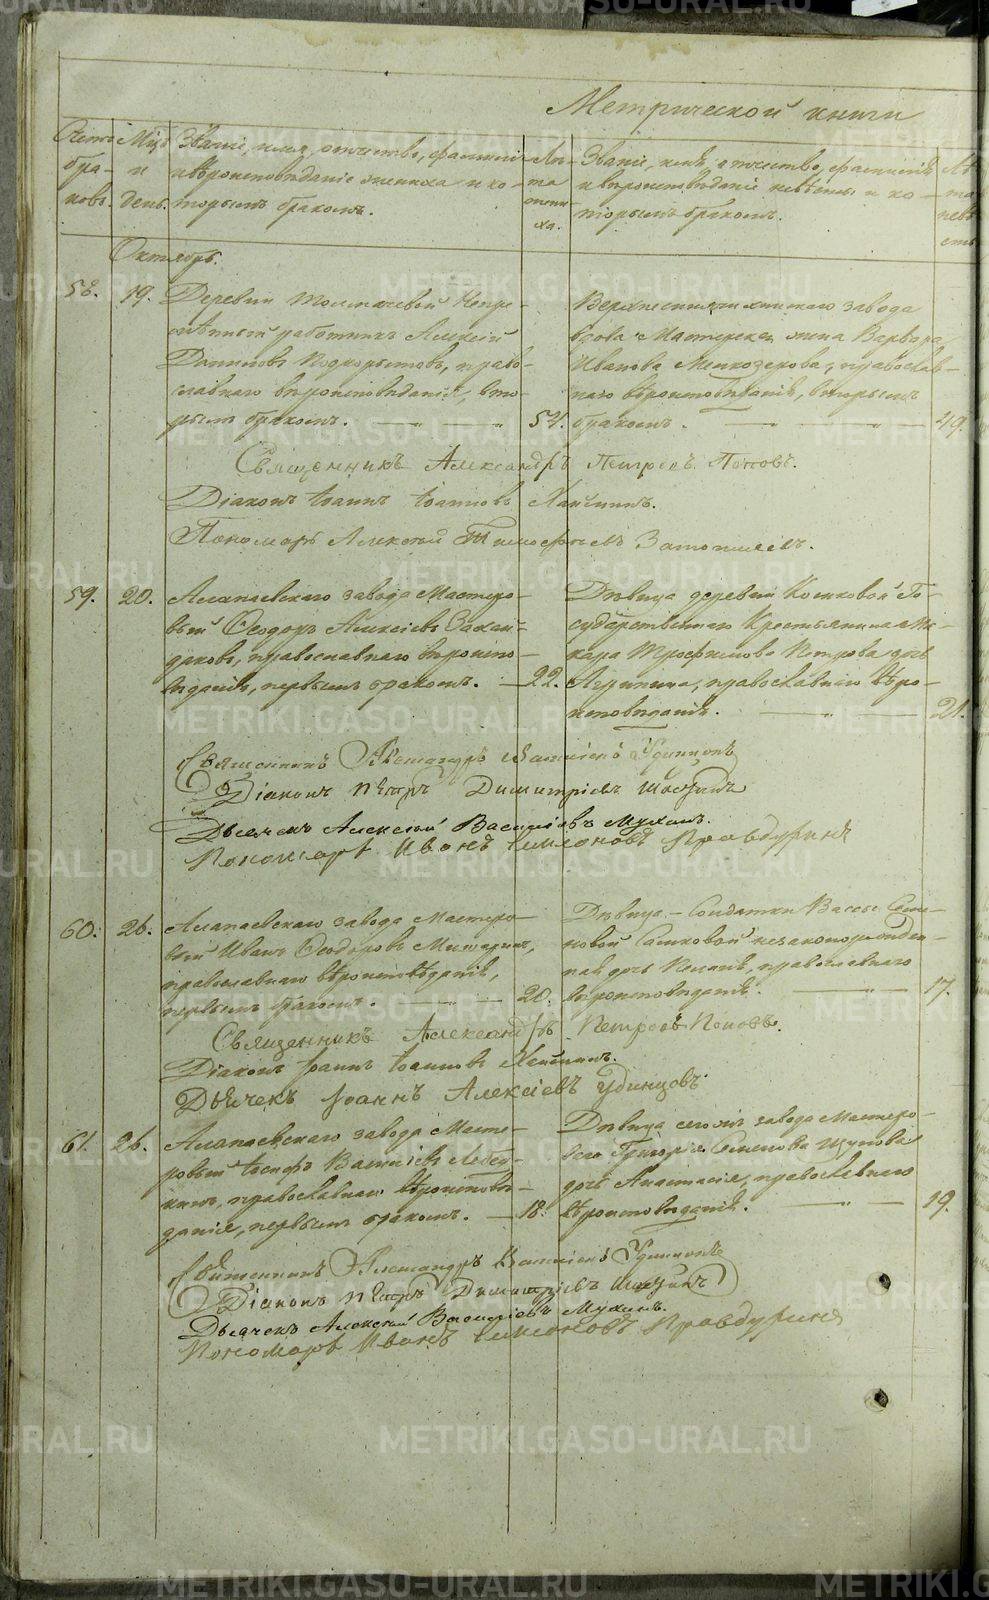 Метрической книги
Счетъ браковъ.
Мцъ и день.
Званіе, имя, отчество, фамилія
и вѣроисповѣданіе жениха и ко-
торымъ бракомъ.
Лѣ-
та
жени-
ха.
Званіе, имя, отчество, фамилія
и вѣроисповѣданіе невѣсты и ко-
торымъ бракомъ.
Лѣ-
та
невѣ-
сты
Октябрь.
58. 19. Деревни Толмачевой Непре-
мѣнный работникъ Алексій
Даниловъ Подкорытовъ, право-
славнаго вѣроисповѣданія, вто-
рымъ бракомъ. 54.
Верхнесинячихинскаго завода
вдова Мастерская жена Варвара
Иванова, православ-
наго вѣроисповѣданія, вторымъ
бракомъ. 49.
Священникъ Александръ Петровъ Поповъ.
Діаконъ Іоаннъ Іоанновъ
Пономарь Алексѣй Тимофѣевъ
59. 20. Алапаевскаго завода Мастеро-
вый Ѳеодоръ Алексіевъ
православнаго вѣроиспо-
вѣданія, первымъ бракомъ. 22.
Дѣвица деревни Го-
сударственнаго Крестьянина
Трофимова Петрова дочь
Агрипина, православнаго вѣро-
исповѣданія. 21.
Священникъ Александръ Василіевъ Удинцовъ
Діаконъ Петръ Димитріевъ
Дьячекъ Алексѣй Василіевъ Мухинъ.
Пономарь Иванъ Симеоновъ Правдухинъ
60. 26. Алапаевскаго завода Мастеро-
вый Иванъ Ѳеодоровъ
православнаго вѣроисповѣданія,
первымъ бракомъ. 20.
Дѣвица - Солдатки Вассы Семе-
новой незаконорожден-
ная дочь православнаго
вѣроисповѣданія. 17.
Священникъ Александръ Петровъ Поповъ.
Діаконъ Іоаннъ Іоанновъ
Дьячекъ Іоаннъ Алексіевъ Удинцовъ.
61. 26. Алапаевскаго завода Масте-
ровый Іосифъ Василіевъ
православнаго вѣроисповѣ-
данія, первымъ бракомъ. 18.
Дѣвица сего же завода Мастеро-
ваго Григорія Семенова Шутова
дочь Анастасія, православнаго
вѣроисповѣданія. 19.
Священникъ Александръ Василіевъ Удинцовъ
Діаконъ Петръ Димитріевъ
Дьячекъ Алексѣй Василіевъ Мухинъ.
Пономарь Иванъ Симеоновъ Правдухинъ
METRIKI.GASO-URAL.RU